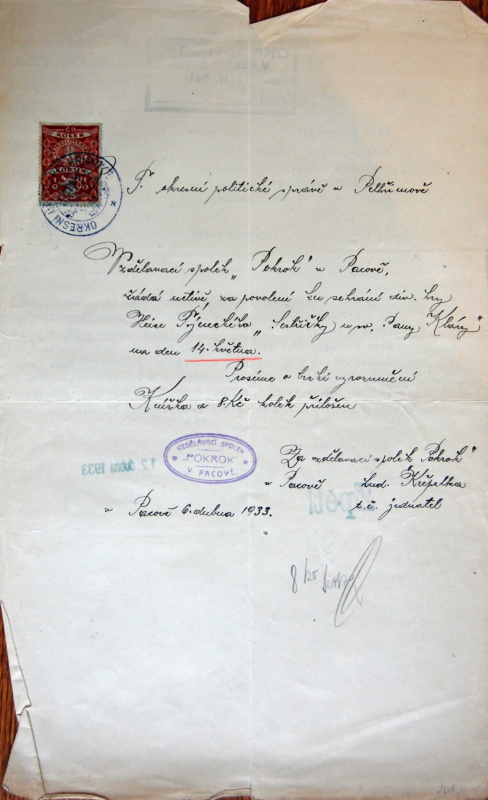 KOLEK
OKRESNÍ
T. okresní politické správě v Pelhřimově
Vzdělavací spolek „Pokrok" v Pacově,
žádá uctivě za povolení ku sehrání div. hry
"Sestřičky u sv. Panny Kláry"
na den 14. května.
Prosíme o brzké vyrozumění
Knížka a 8 Kč kolek přiložen
VZDĚLAVACÍ SPOLEK
POKROK
V PACOVĚ
12. dubna 1933
Za vzdělavací spolek „Pokrok"
v Pacově Lud. Křepelka
t.č. jednatel
Zpět!
v Pacově 6. dubna 1933.
8/IV